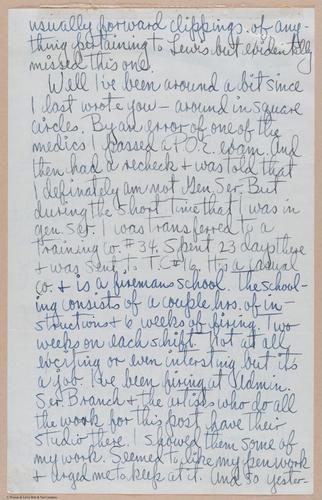 usually forward clippings of any-
thing pertaining to Lewis but evidentally
missed this one.
Well I've been around a bit since
I last wrote you – around in square
circles. By an error of one of the
medics I passed a P.O.E. exam. And
then had a recheck & was told that
I definately am not Gen. Ser. But
during the short time that I was in
gen. ser. I was transferred to a
Training co. #34. Spent 23 days there
& was sent to T.C.#16. It's a casual
co. & is a firemans school. The school-
ing consists of a couple hrs. of in-
structions & 6 weeks of firing. Two
weeks on each shift. Not at all
exciting or even intersting but it's
a job. I've been firing at Admin.
Ser. Branch & the artists who do all
the work for this post have their
studio there. I showed them some of
my work. Seemed to like my pen work
& urged me to keep at it. And so yester-